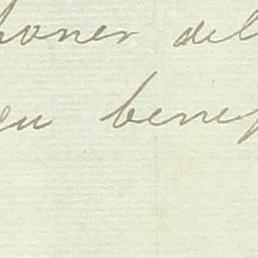 poner del
en benef